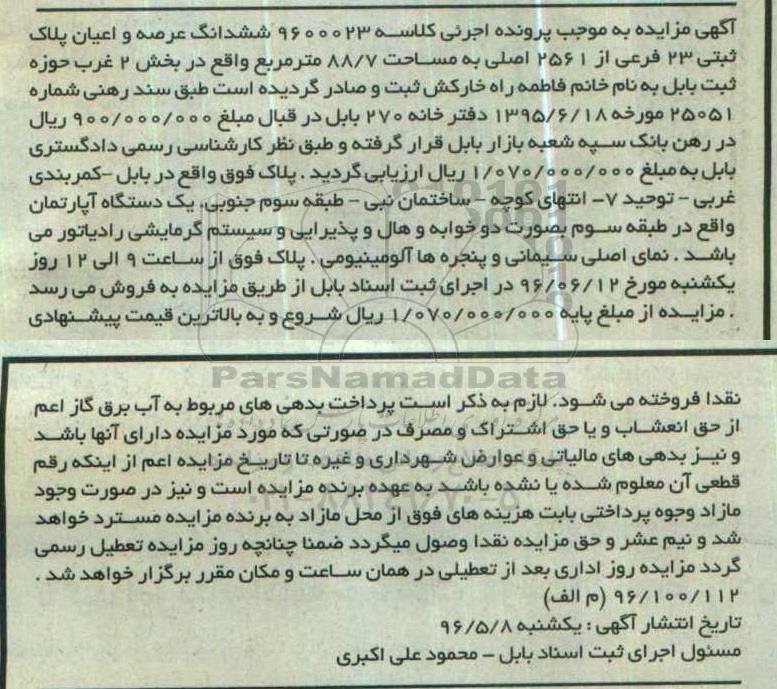 آگهی مزایده به موجب پرونده اجرئی کلاسه ۹۶۰۰۰۲۳ ششدانگ عرصه و اعیان پلاک
ثبتی ۲۳ فرعی از ۲۵۶۱ اصلی به مساحت ۸۸/۷ مترمربع واقع در بخش ۲ غرب حوزه
ثبت بابل به نام خانم فاطمه راه خارکش ثبت و صادر گردیده است طبق سند رهنی شماره
۲۵۰۵۱ مورخه ۱۳۹۵/۶/۱۸ دفتر خانه ۲۷۰ بابل در قبال مبلغ ۹۰۰/۰۰۰/۰۰۰ ریال
در رهن بانک سپه شعبه بازار بابل قرار گرفته و طبق نظر کارشناسی رسمی دادگستری
بابل به مبلغ ۱/۰۷۰/۰۰۰/۰۰۰ ریال ارزیابی گردید . پلاک فوق واقع در بابل -کمربندی
غربی - توحید ۷- انتهای کوچه - ساختمان نبی - طبقه سوم جنوبی. یک دستگاه آپارتمان
واقع در طبقه سوم بصورت دو خوابه و هال و پذیرایی و سیستم گرمایشی رادیاتور می
باشد . نمای اصلی سیمانی و پنجره ها آلومینیومی . پلاک فوق از ساعت ۹ الی ۱۲ روز
یکشنبه مورخ ۹۶/۰۶/۱۲ در اجرای ثبت اسناد بابل از طریق مزایده به فروش می رسد
. مزایده از مبلغ پایه ۱/۰۷۰/۰۰۰/۰۰۰ ریال شروع و به بالاترین قیمت پیشنهادی
ParsNamadData
نقدا فروخته می شود. لازم به ذکر است پرداخت بدهی های مربوط به آب برق گاز اعم
از حق انعشاب و یا حق اشتراک و مصرف در صورتی که مورد مزایده دارای آنها باشد
و نیز بدهی های مالیاتی و عوارض شهرداری و غیره تا تاریخ مزایده اعم از اینکه رقم
قطعی آن معلوم شده یا نشده باشد به عهده برنده مزایده است و نیز در صورت وجود
مازاد وجوه پرداختی بابت هزینه های فوق از محل مازاد به برنده مزایده مسترد خواهد
شد و نیم عشر و حق مزایده نقدا وصول میگردد ضمنا چنانچه روز مزایده تعطیل رسمی
گردد مزایده روز اداری بعد از تعطیلی در همان ساعت و مکان مقرر برگزار خواهد شد .
۹۶/۱۰۰/۱۱۲ (م الف)
تاریخ انتشار آگهی : یکشنبه ۹۶/۵/۸
مسئول اجرای ثبت اسناد بابل - محمود علی اکبری